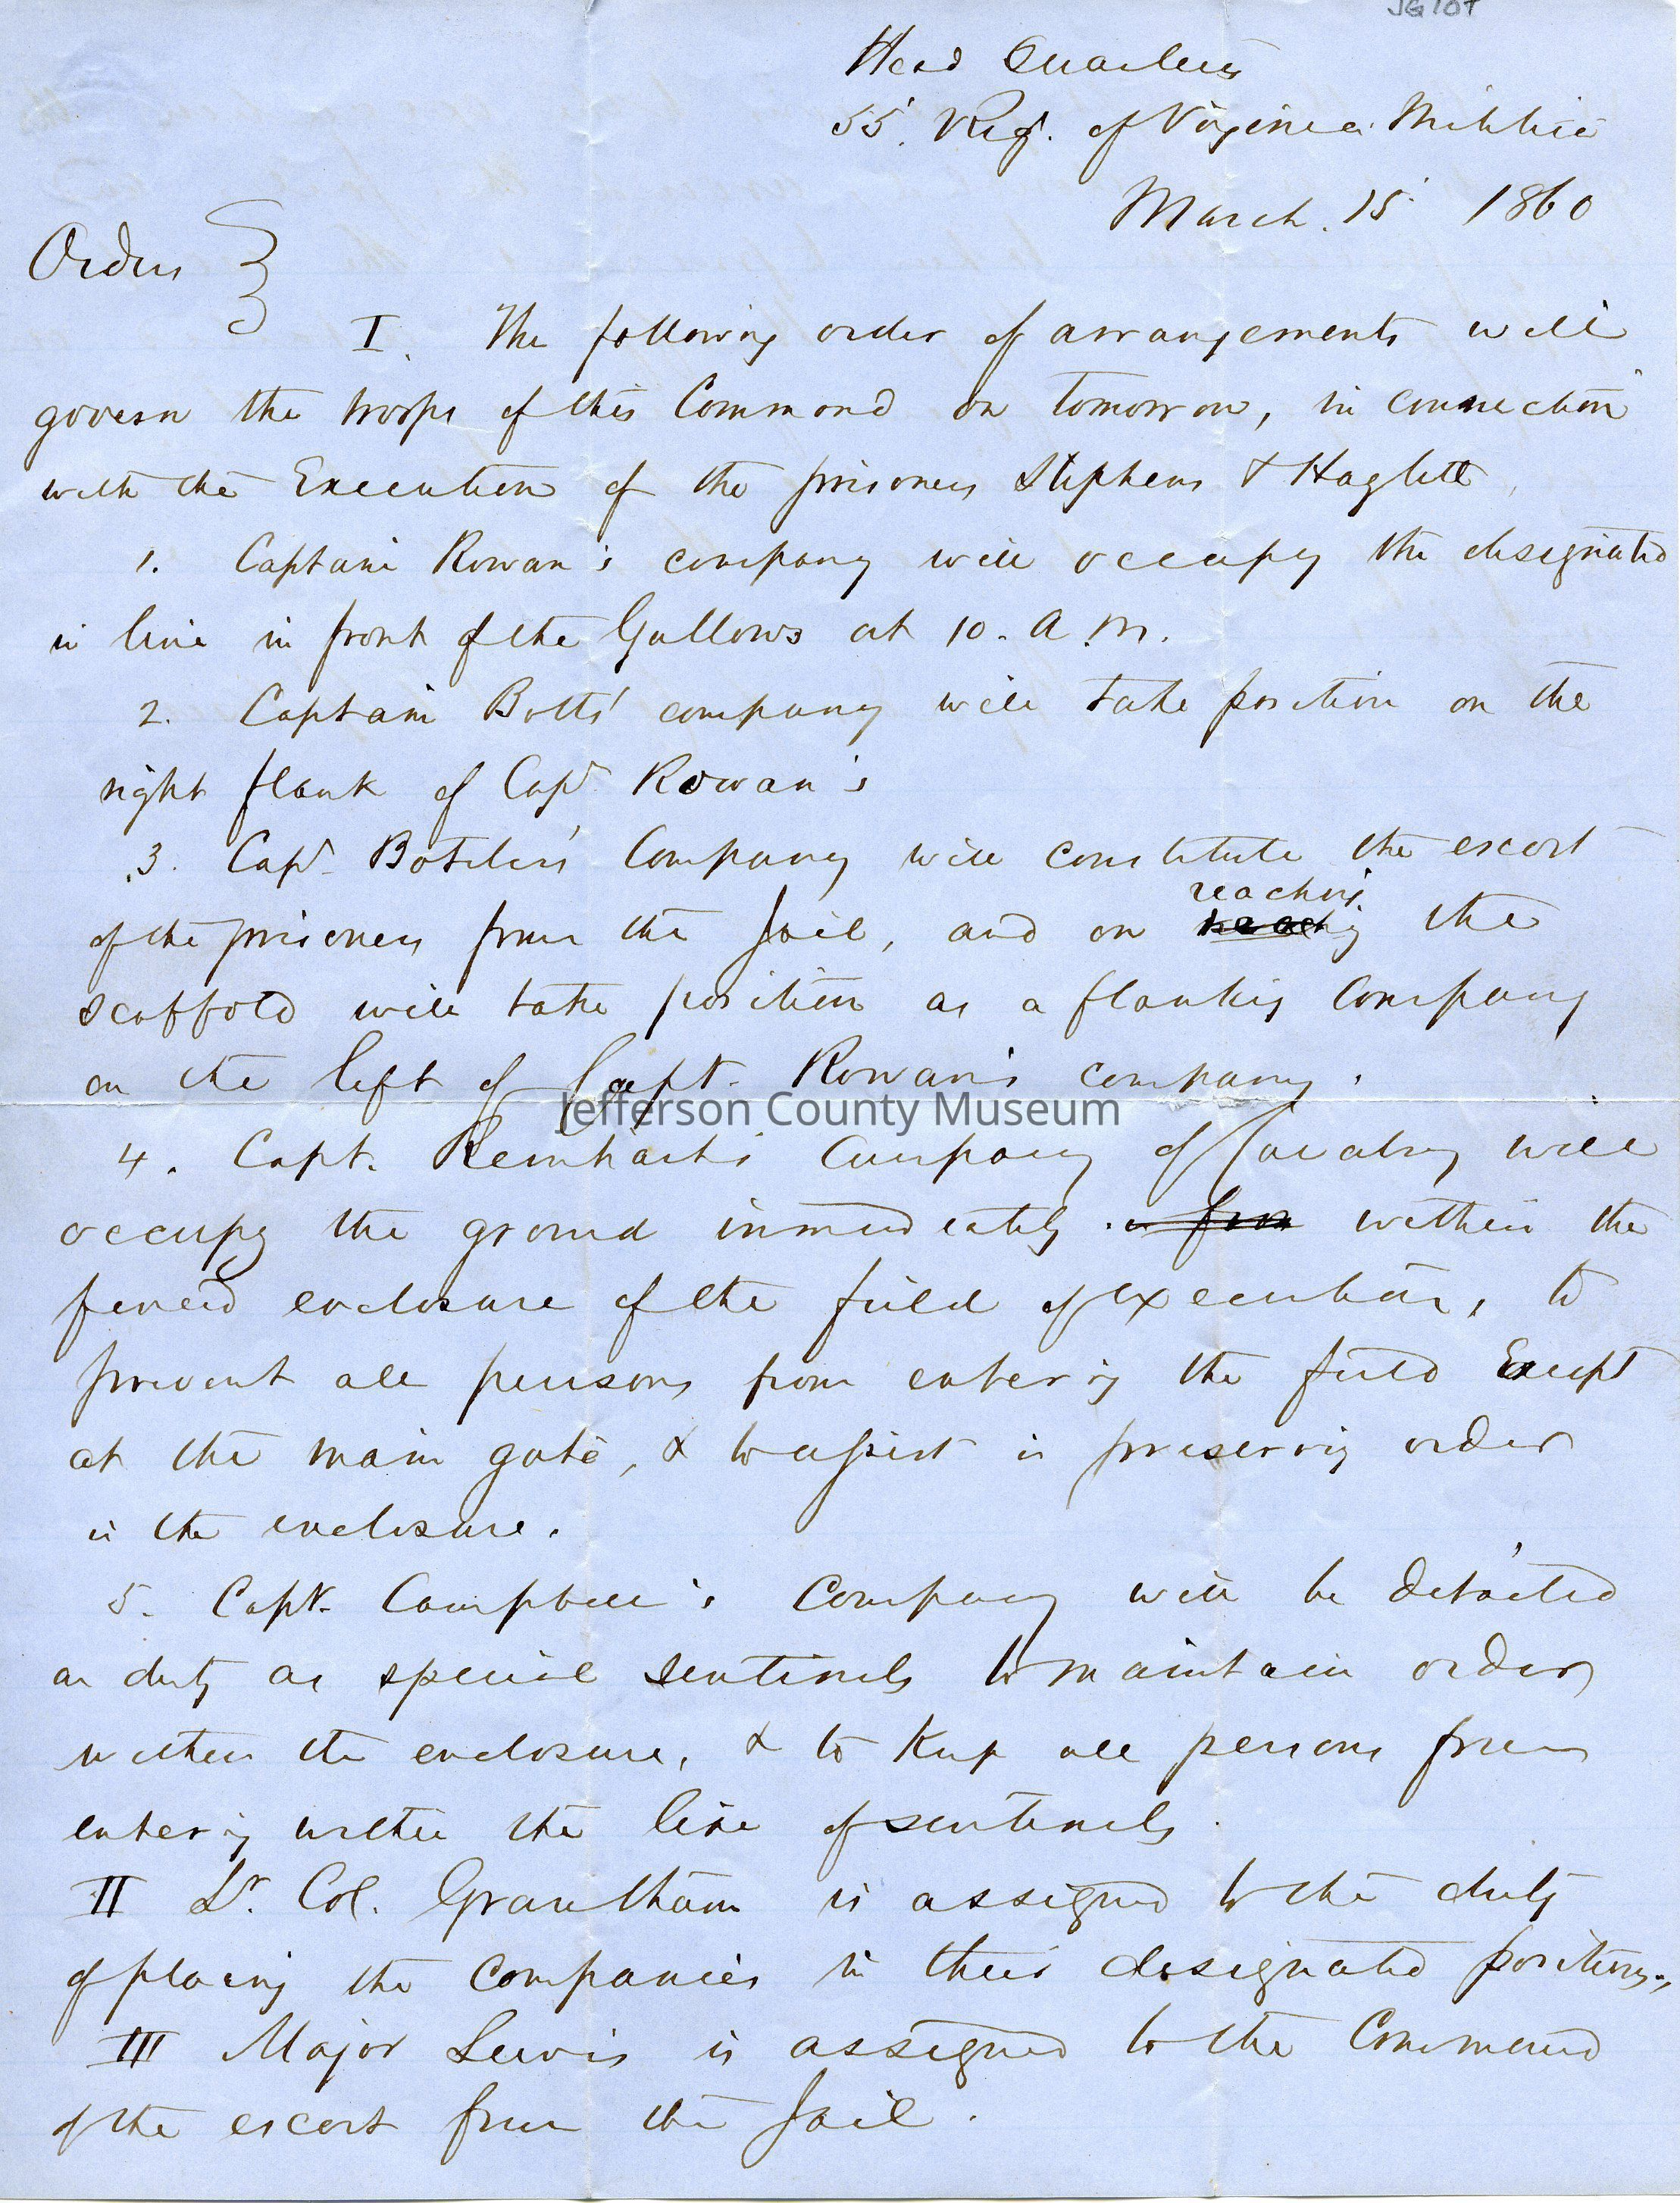 JG107
Head Quarters
55. Reg. of Virginia Militia
March. 15 1860
Orders
I. The following order of arrangements will
govern the troops of this Command on tomorrow, in connection
with the Execution of the prisoners Stephens & Haglett
1. Captain Rowan's company will occupy the designated
in line in front of the Gallows at 10. A.M.
2. Captain Botts' company will take position on the
right flank of Capt Rowan's
3. Capt Botelers' Company will constitute the escort
reaching
of the prisoners from the Jail, and on the
scaffold will take position as a flanking Company
on the left of Capt. Rowan's company.
Jefferson County Museum
4. Capt. Reinhart's Company of Cavalry will
occupy the ground immediately in fron within the
fenced enclosure of the field of execution, to
prevent all persons from entering the field Except
at the main gate, & to assist in preserving order
in the enclosure.
5. Capt. Campbell's Company will be detailed
on duty as special sentinels to maintain order
within the enclosure, & to Keep all persons from
entering within the line of sentinels.
II Lt. Col. Grantham is assigned to the duty
of placing the Companies in their designated positions.
III Major Lewis is assigned to the Command
of the escort from the Jail.